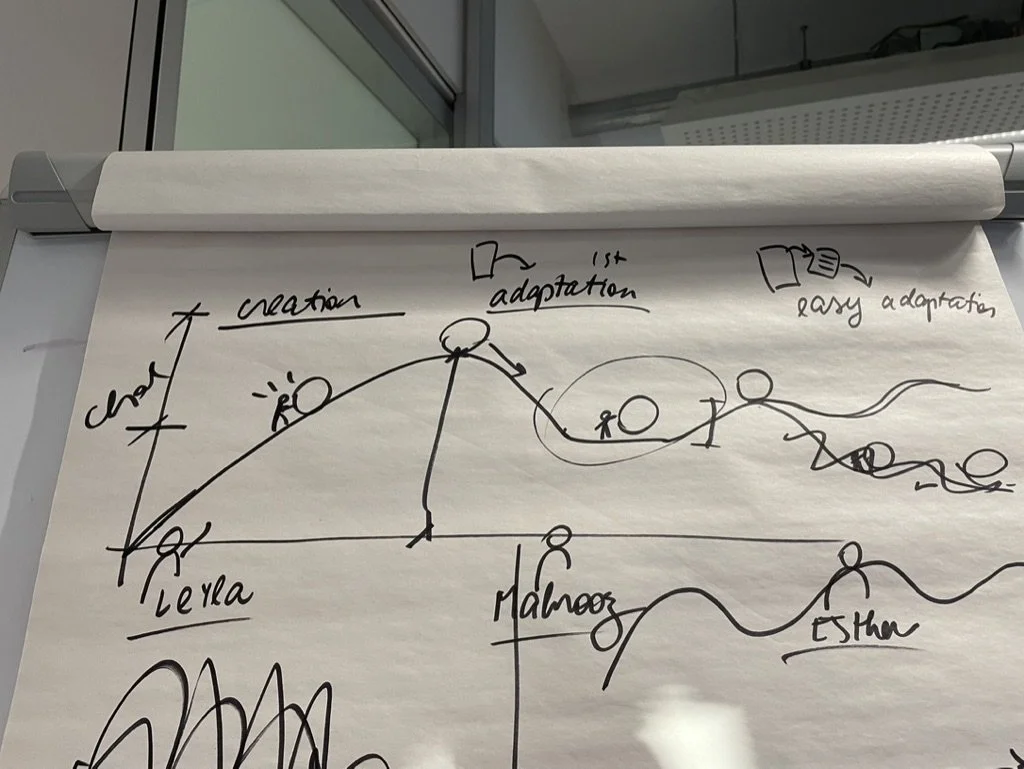 creation
1st
adaptation
easy adaptation
Leyla
Mahnooz
Esther